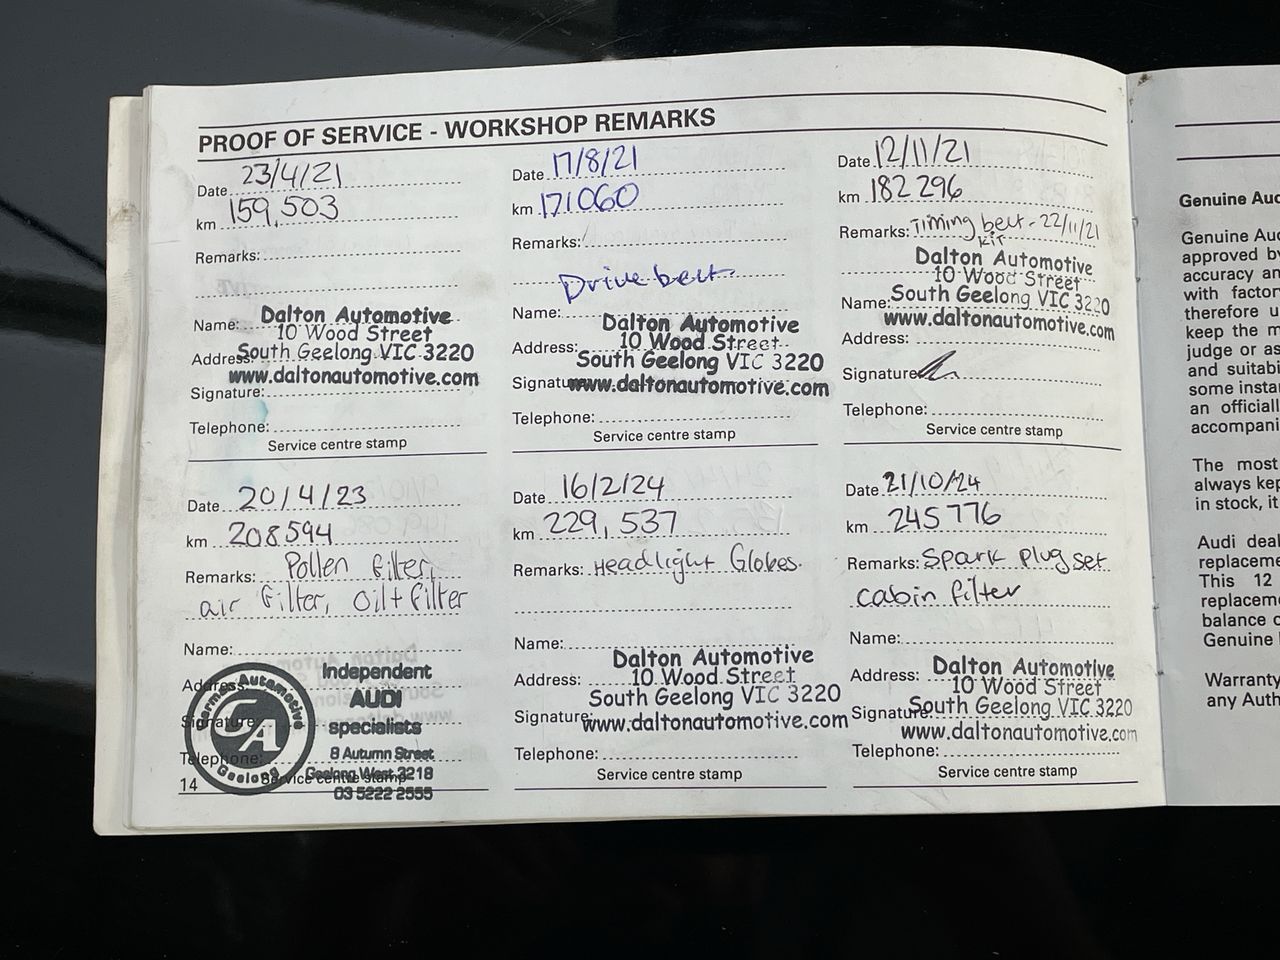 PROOF OF SERVICE - WORKSHOP REMARKS
Date 23/4/21
km 159,503
Remarks:
Name: Dalton Automotive
10 Wood Street
Address: South Geelong VIC 3220
www.daltonautomotive.com
Signature:
Telephone:
Service centre stamp
Date 17/8/21
km 171060
Remarks:
Drive belt
Name: Dalton Automotive
Address: 10 Wood Street
South Geelong VIC 3220
Signature www.daltonautomotive.com
Telephone:
Service centre stamp
Date 12/11/21
km 182 296
Remarks: Timing belt - 22/11/21
kit
Dalton Automotive
10 Wood Street
Name: South Geelong VIC 3220
www.daltonautomotive.com
Address:
Signature
Telephone:
Service centre stamp
Date 20/4/23
km 208594
Remarks: Pollen filter,
air filter, oil + filter
Name:
Address:
Signature:
Telephone:
Service centre stamp
German Automotive
GA
Geelong
Independent
AUDI
specialists
8 Autumn Street
Geelong West 3218
03 5222 2555
14
Date 16/2/24
km 229,537
Remarks: Headlight Globes.
Name: Dalton Automotive
Address: 10 Wood Street
South Geelong VIC 3220
Signature: www.daltonautomotive.com
Telephone:
Service centre stamp
Date 21/10/24
km 245776
Remarks: Spark plug set
cabin filter
Name:
Address: Dalton Automotive
10 Wood Street
Signature: South Geelong VIC 3220
www.daltonautomotive.com
Telephone:
Service centre stamp
Genuine
Genuine
approved
accuracy
with
therefore
keep the
judge or
and
some
an
The most
always
in stock, it
Audi
This 12
balance
Genuine
Warranty
any